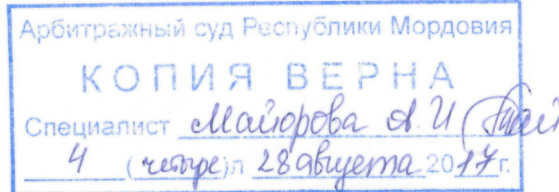 Арбитражный суд Республики Мордовия
КОПИЯ ВЕРНА
Специалист Майорова А. И
4 (четыре) л 28 августа 2017 г.